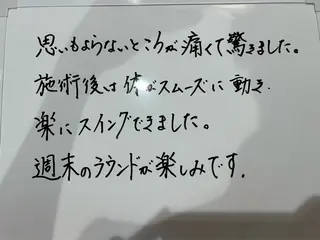 思いもよらないところが痛くて驚きました。
施術後は体がスムーズに動き.
楽にスイングできました。
週末のラウンドが楽しみです.